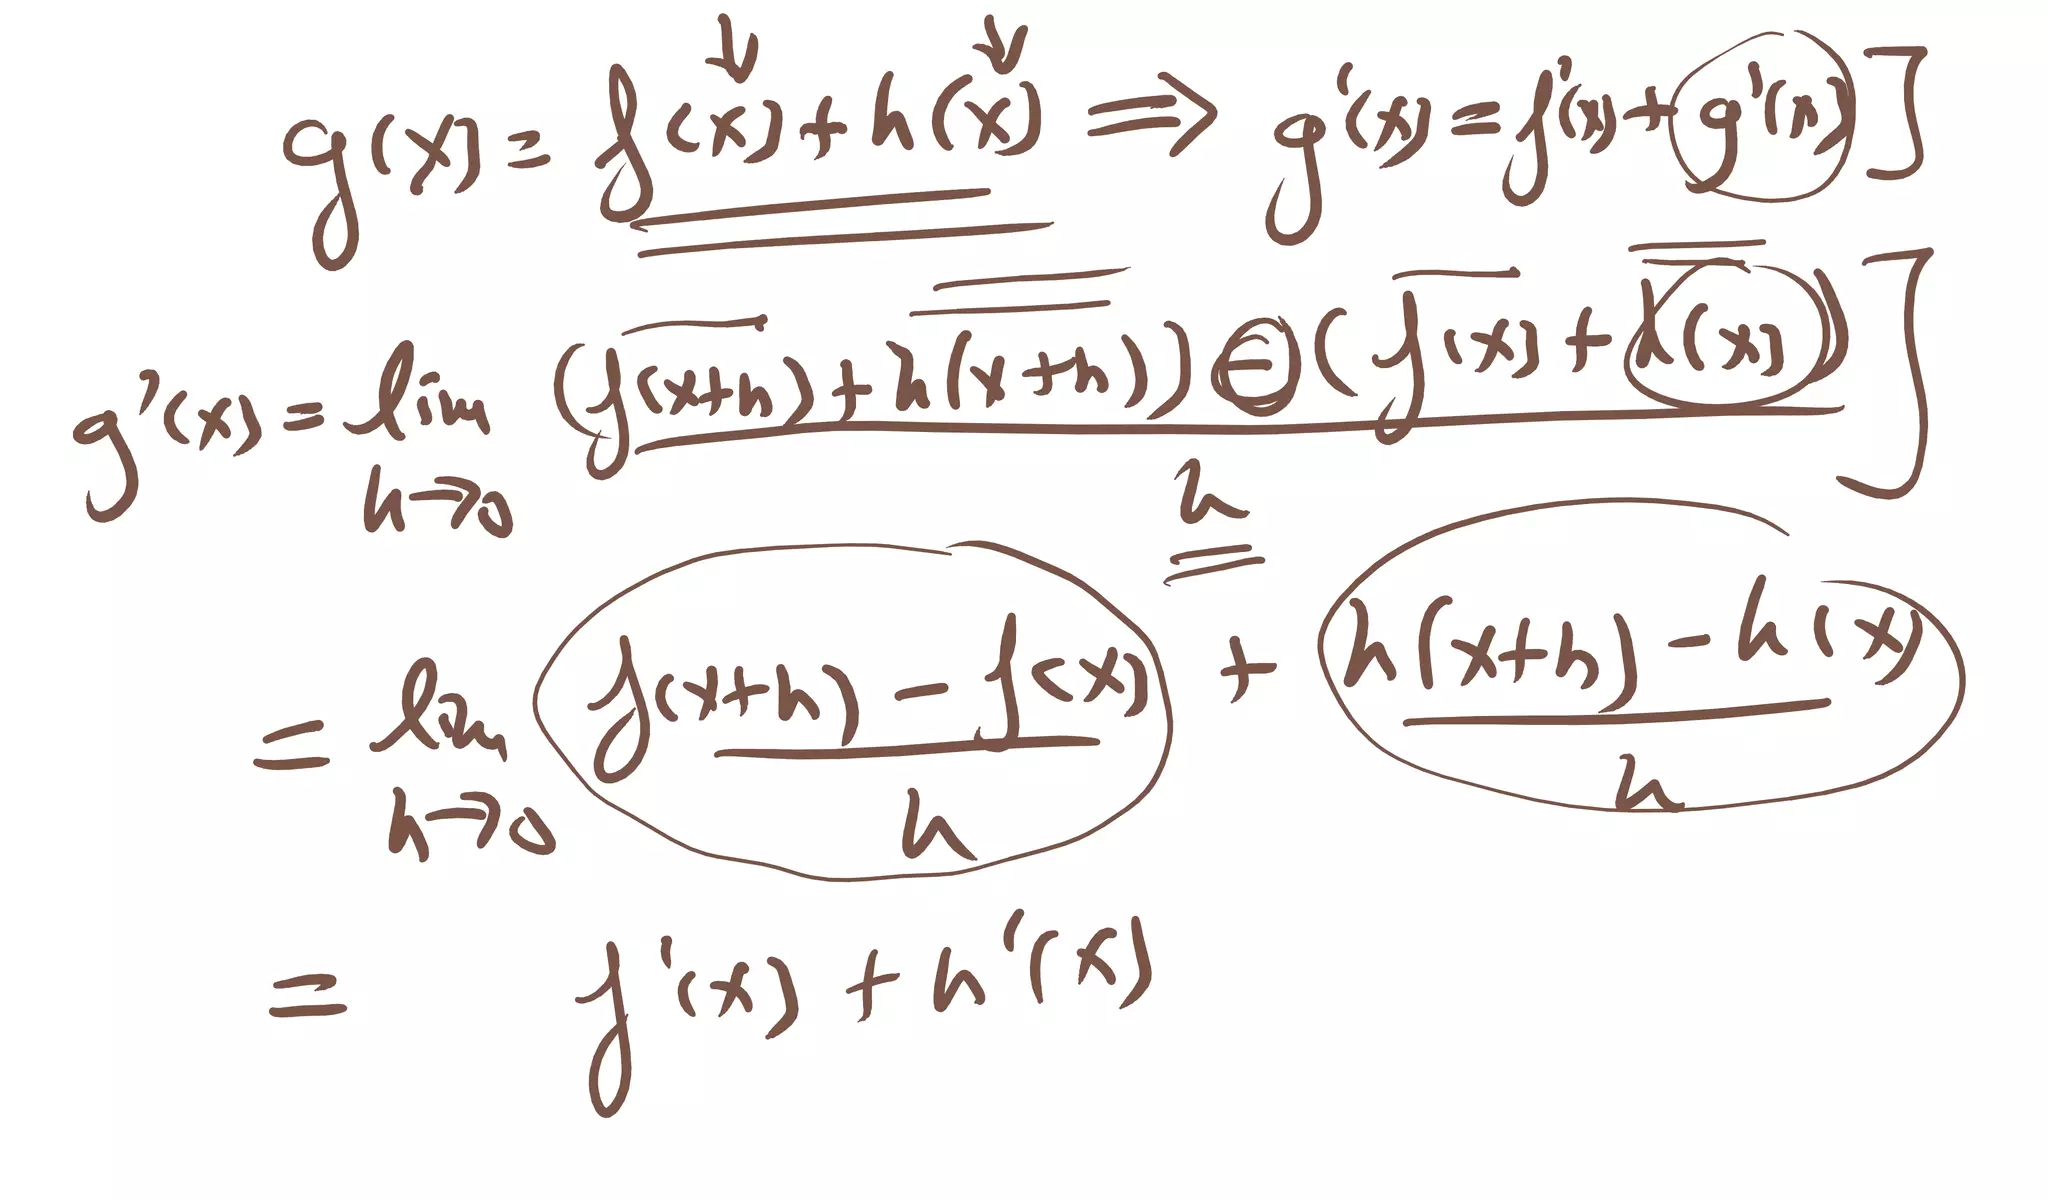 g(x) = f(x) + h(x) ⇒ g'(x) = f'(x) + g'(x) ]
g'(x) = lim h→0 (f(x+h) + h(x+h)) ⊖ (f(x) + h(x)) ]
h
= lim h→0 f(x+h) − f(x) / h + h(x+h) − h(x) / h
= f'(x) + h'(x)